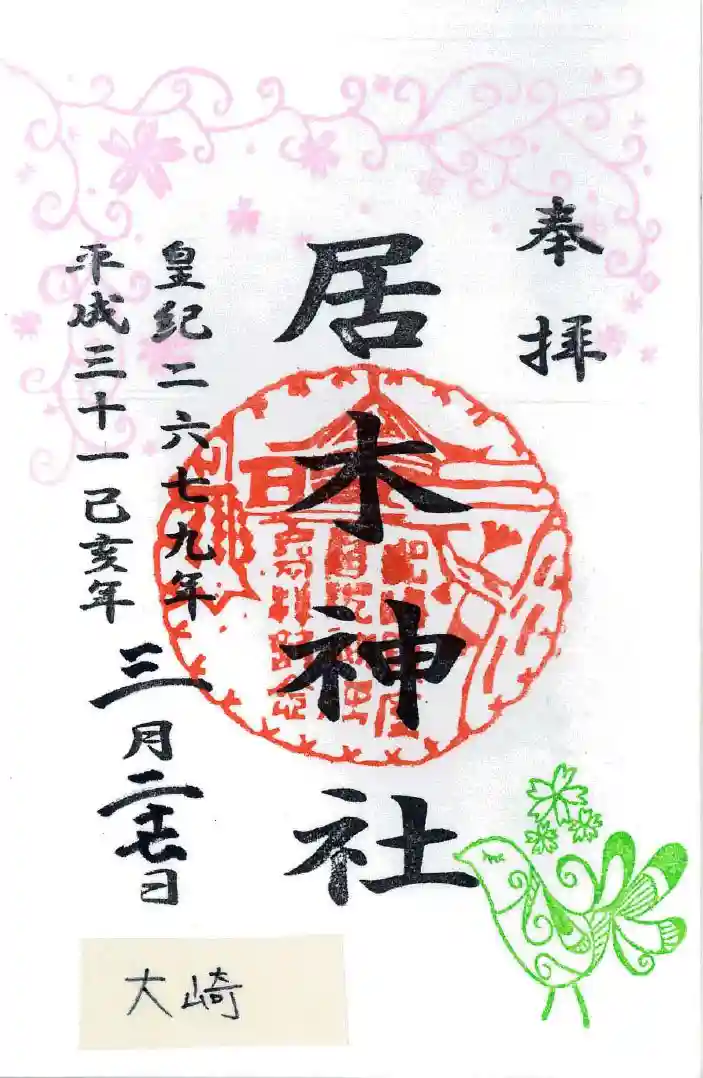 奉拝
居木神社
皇紀二六七九年
平成三十一己亥年
三月二十七日
大崎